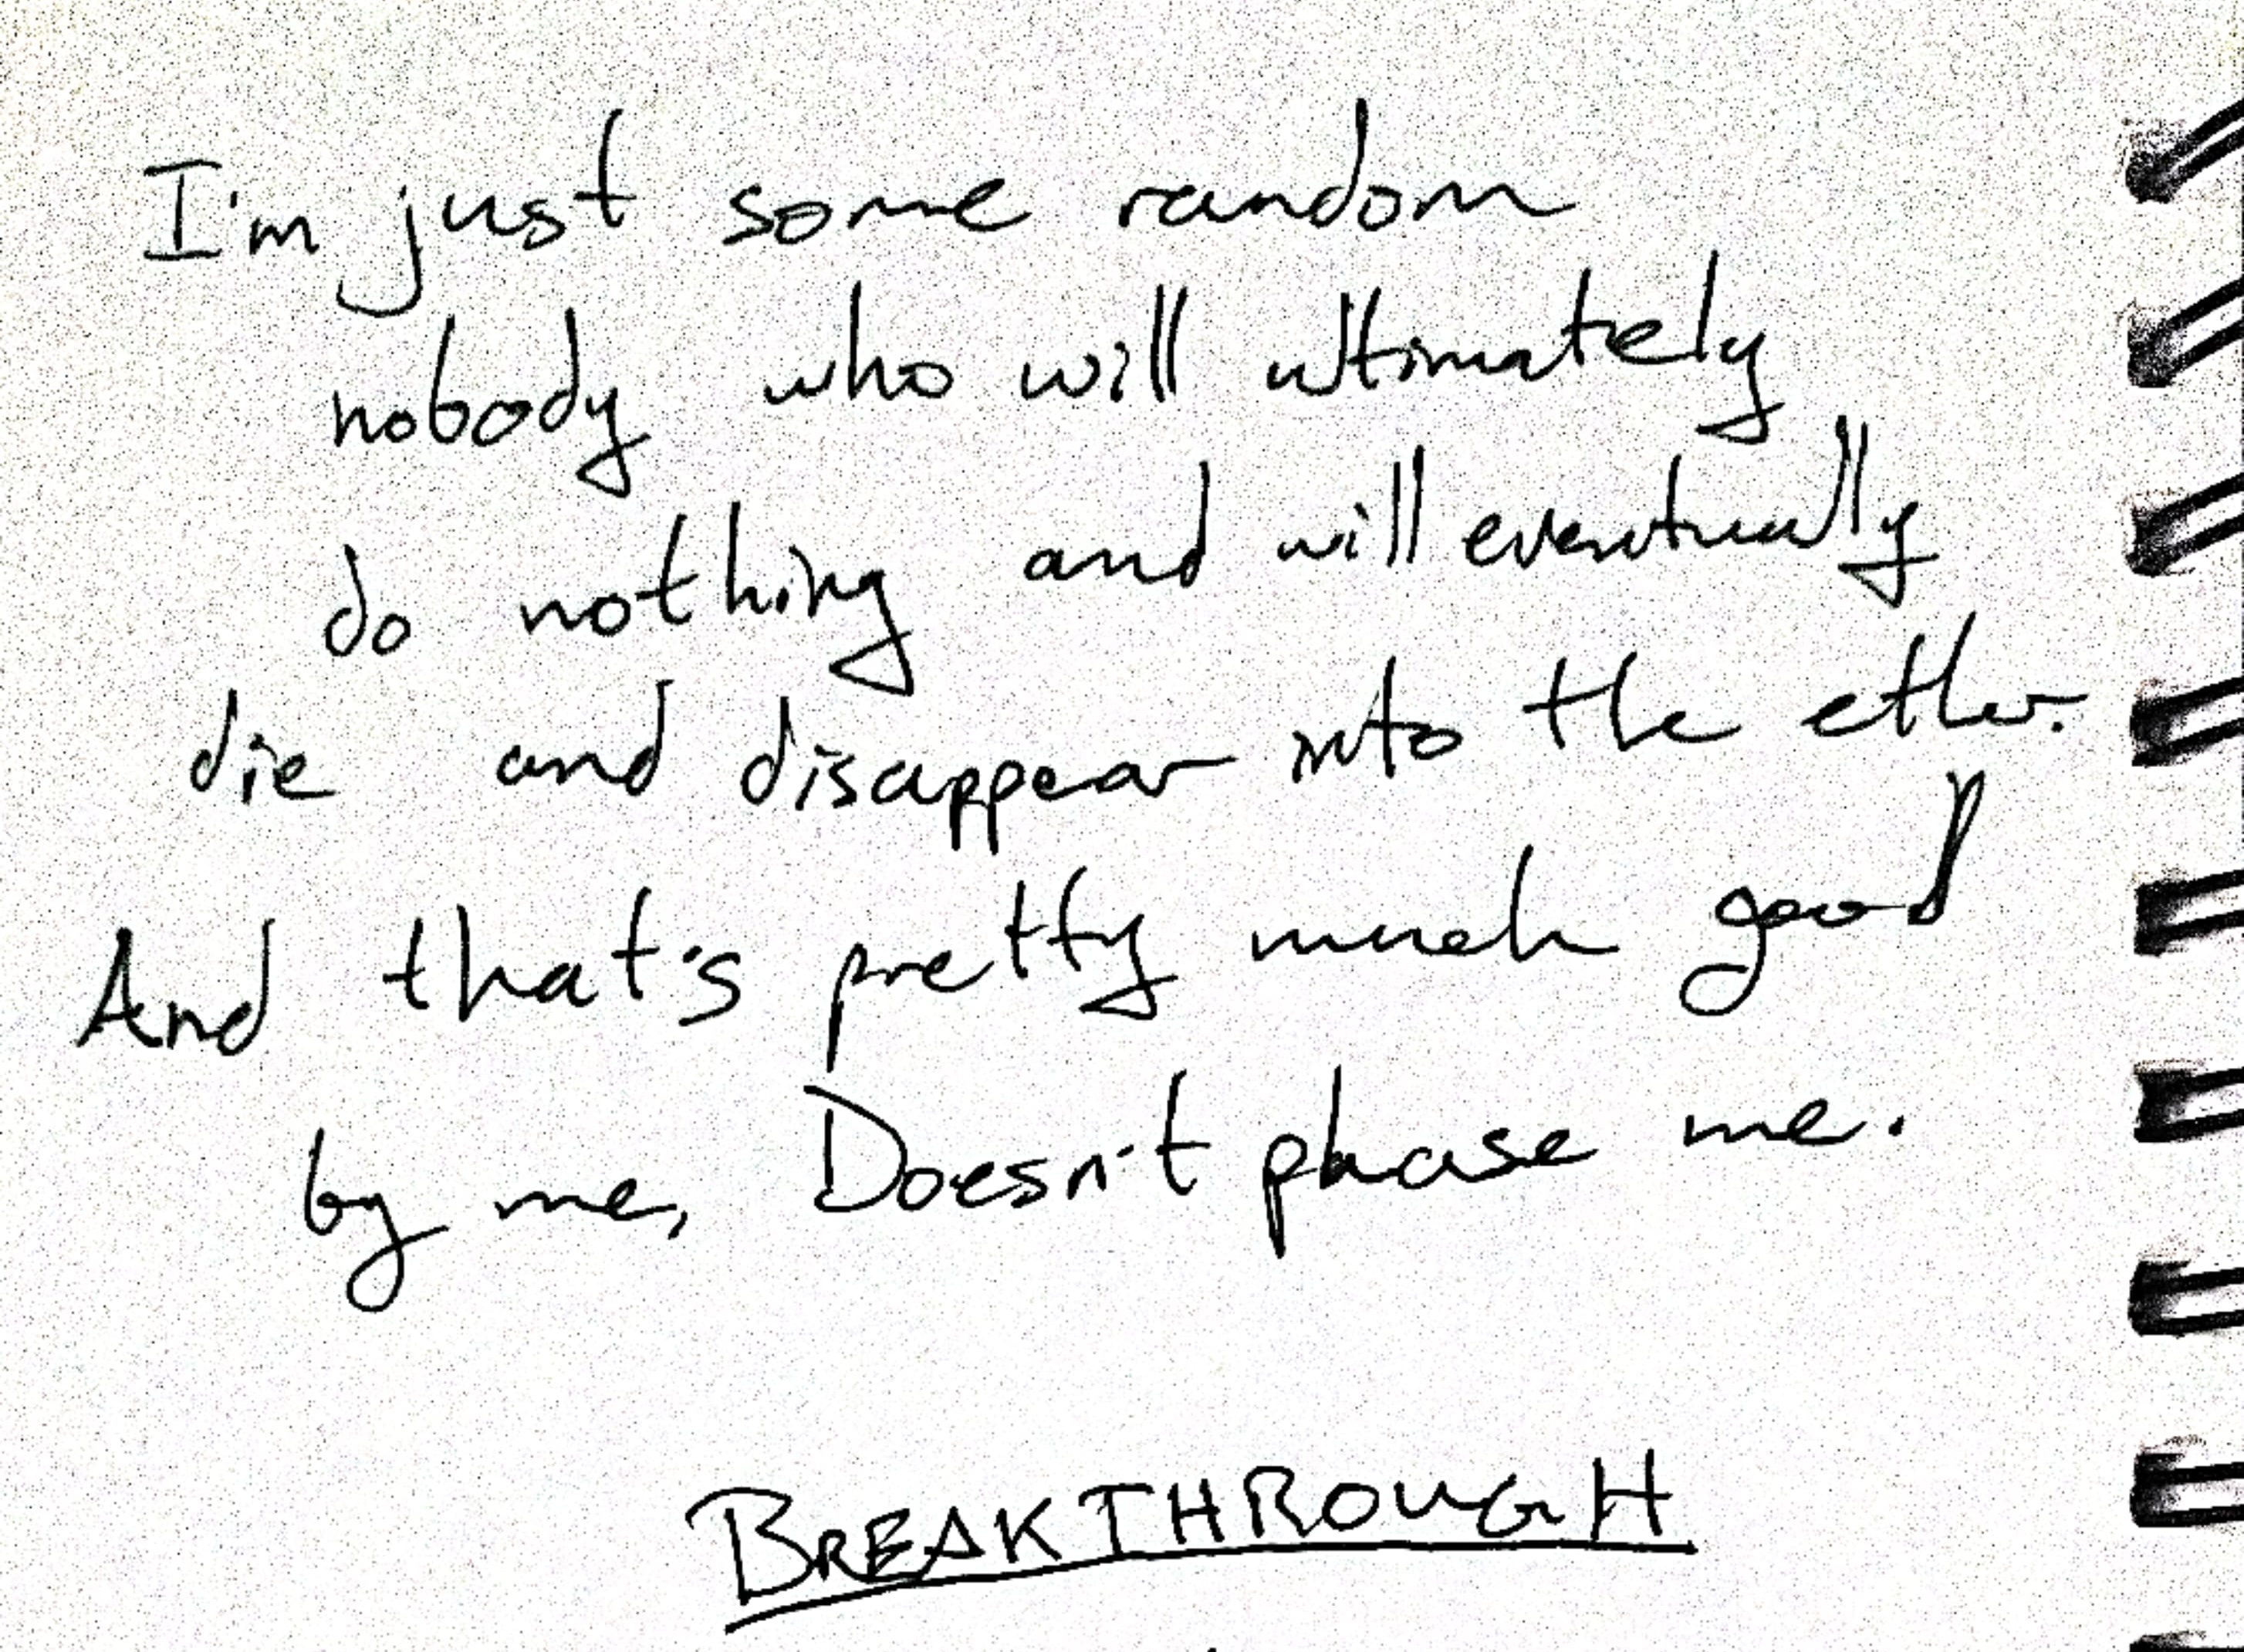 I'm just some random
nobody who will ultimately
do nothing and will eventually
die and disappear into the ether.
And that's pretty much good
by me, Doesn't phase me.
BREAKTHROUGH